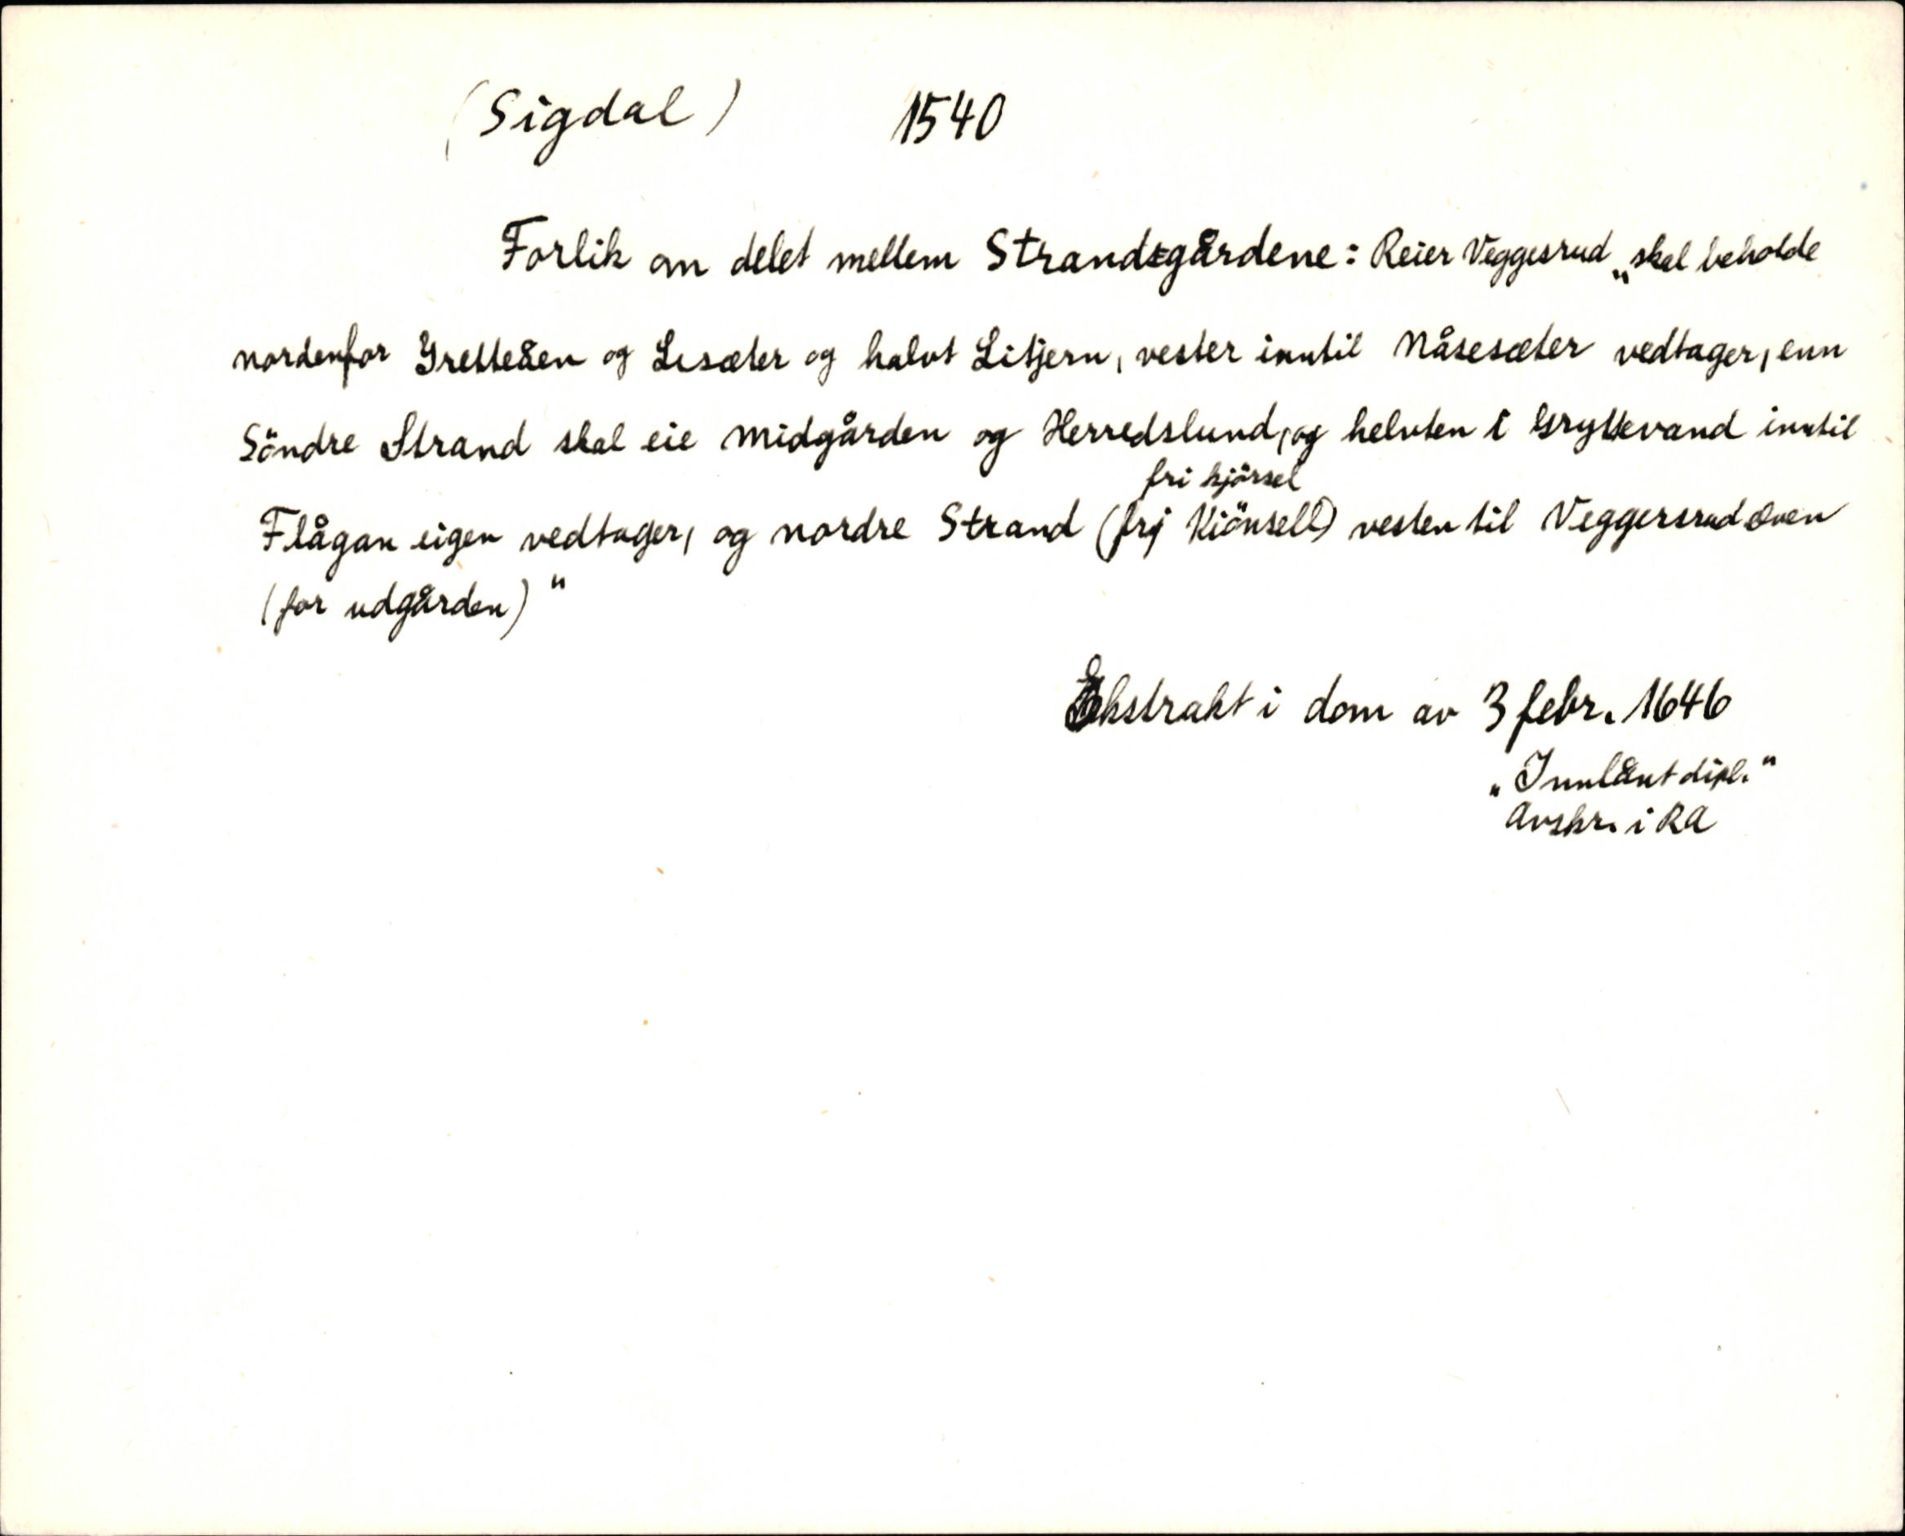 (Sigdal) 1540
Forlik om delet mellem Strandsgårdene: Reier Veggesrud „skal beholde
nordenfor Gretteåen og Lisæter og halvt Litjern, vester inntil Nåsesæter vedtager, enn
Söndre Strand skal eie Midgården og Herredslund, og helvten i Gryttevand inntil
fri kjörsel
Flågan eigen vedtager, og nordre Strand (frj Kiönsell) vesten til Veggersrud oven
(for udgården)"
Ekstrakt i dom av 3 febr. 1646
„Innlånt dipl."
Avskr. i RA